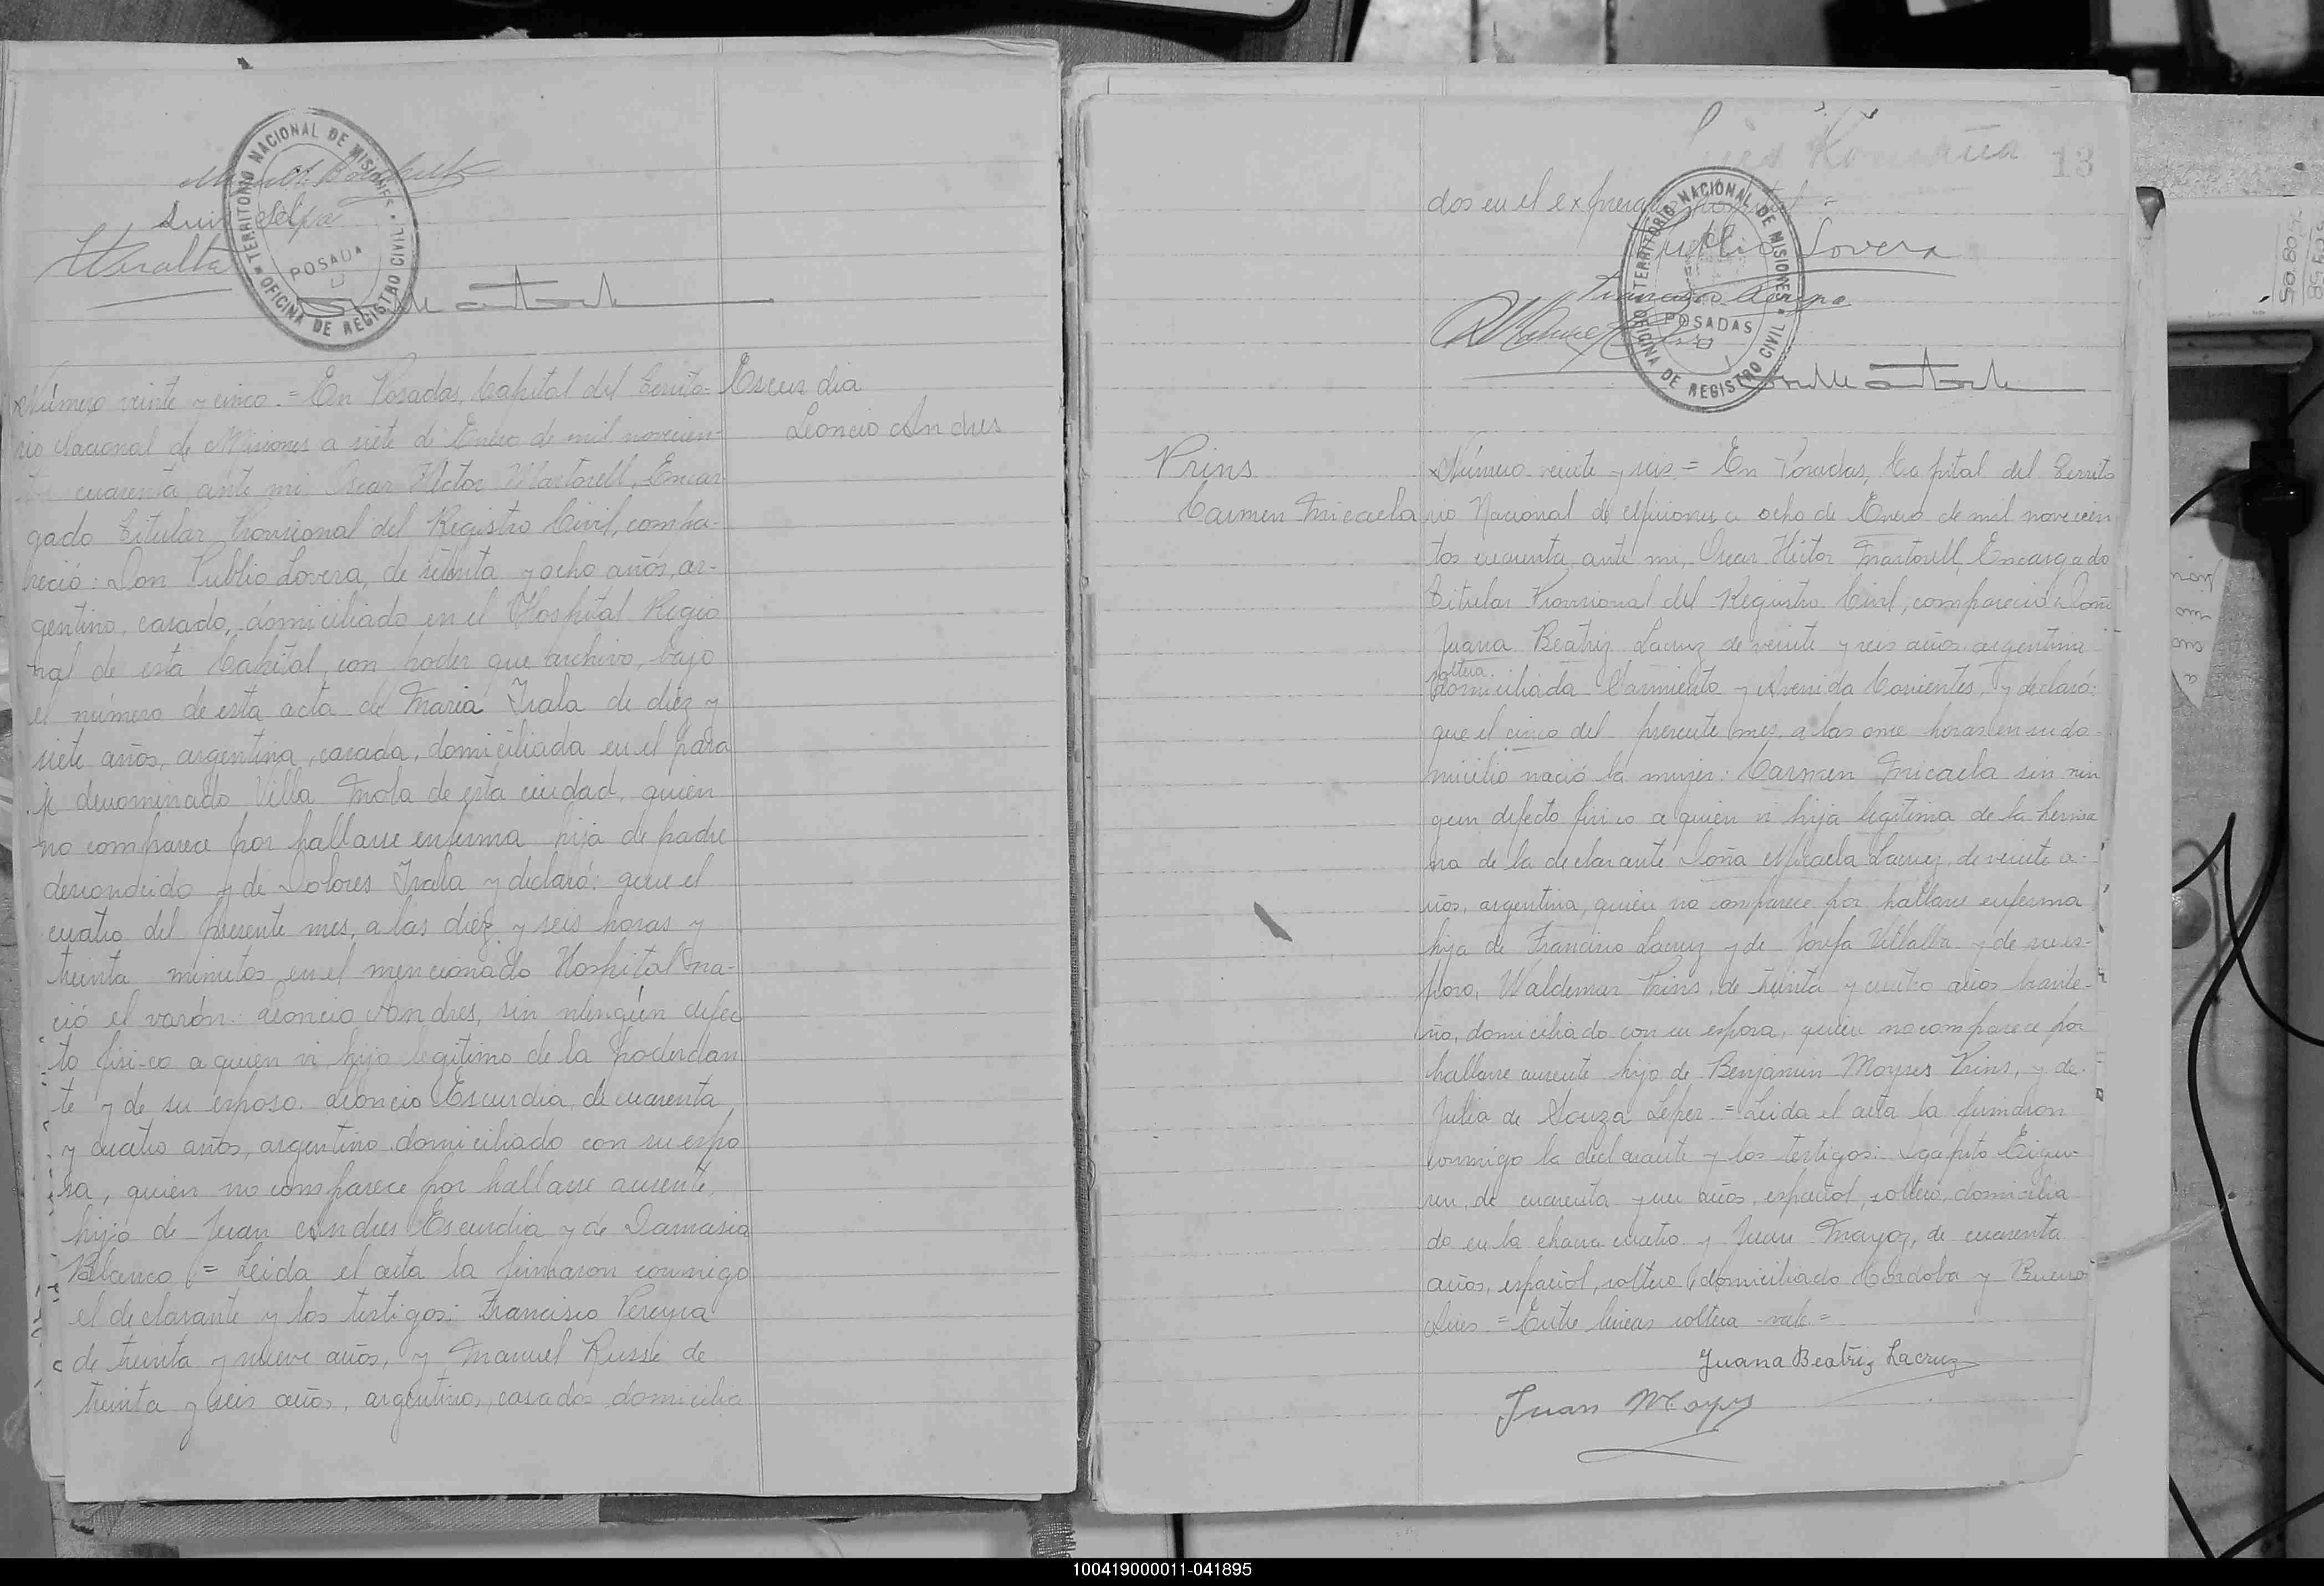 TERRITORIO NACIONAL DE MISIONES
OFICINA DE REGISTRO CIVIL
POSADAS
Luis
Número veinte y cinco.= En Posadas, Capital del Territo-
rio Nacional de Misiones a siete de Enero de mil novecien-
tos cuarenta, ante mi Oscar Héctor Martorell, Encar
gado Titular Provisional del Registro Civil, compa-
reció: Don Publio Lovera, de setenta y ocho años, ar-
gentino, casado, domiciliado en el Hospital Regio
nal de esta Capital, con poder que archivo, bajo
el número de esta acta de Maria Irala de diez y
siete años, argentina, casada, domiciliada en el para
je denominado Villa Mola de esta ciudad, quien
no comparece por hallarse enferma hija de padre
desconocido y de Dolores Irala y declaró: que el
cuatro del presente mes, a las diez y seis horas y
treinta minutos en el mencionado Hospital na-
ció el varón: Leoncio Andres, sin ningún defec
to fisi-co a quien vi hijo legitimo de la poderdan
te y de su esposo Leoncio Escurdia, de cuarenta
y cuatro años, argentino domiciliado con su espo
sa, quien no comparece por hallarse ausente,
hijo de Juan Andres Escurdia y de Damasia
Blanco = Leida el acta la firmaron conmigo
el declarante y los testigos: Francisco Pereyra
de treinta y nueve años, y Manuel Russi de
treinta y seis años, argentinos, casados domicilia
Escurdia
Leoncio Andres
13
dos en el expresado Hospital =
Publio Lovera
TERRITORIO NACIONAL DE MISIONES
OFICINA DE REGISTRO CIVIL
POSADAS
Francisco
Prins
Carmen Micaela
Número veinte y seis = En Posadas, Capital del Territo
rio Nacional de Misiones a ocho de Enero de mil novecien
tos cuarenta ante mi, Oscar Héctor Martorell, Encargado
Titular Provisional del Registro Civil, compareció: Doña
Juana Beatriz Lacruz de veinte y seis años argentina
soltera
domiciliada Sarmiento y Avenida Corrientes, y declaró:
que el cinco del presente mes, a las once horas en su do-
micilio nació la mujer: Carmen Micaela sin nin
gun defecto fisico a quien vi hija legitima de la herma
na de la declarante Doña Micaela Lacruz, de veinte a-
ños, argentina, quien no comparece por hallarse enferma
hija de Francisco Lacruz y de Josefa Villalba y de su es-
poso, Waldemar Prins, de treinta y cuatro años brasile-
ño, domiciliado con su esposa, quien no comparece por
hallarse ausente hijo de Benjamin Moyses Prins, y de
Julia de Souza Leper = Leida el acta la firmaron
conmigo la declarante y los testigos: Agapito
de cuarenta y un años, español, soltero, domicilia
do en la chacra cuatro y Juan Mayoz, de cuarenta
años, español, soltero domiciliado Córdoba y Buenos
Aires = Entre lineas soltera - vale =
Juana Beatriz Lacruz
Juan Mayoz
100419000011-041895